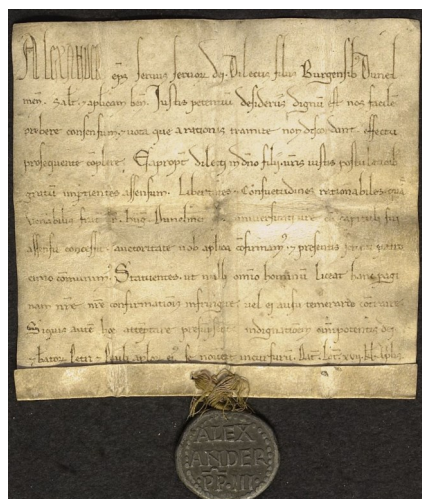 ALEXANDER ep̄s servus servor̄ dī. Dilectis filiis Burgensib; Dunel
men. salt. & aplicam ben. Iustis petentiū desideriis dignū est nos facilē
prebere consensum. & vota que a rationis tramite non discordant. effectu
prosequente cōplere. Eapropt̄ dilecti in dno filii. vr̄is iustis postulationib;
gratum impertientes assensum. Libertates & Consuetudines rationabiles
venerabilis frat̄ Dunelm̄ de capituli sui
assensu concessit. auctoritate nob̄ aplica cōfirmam̄. & presentis scripti patro
cinio cōmunim̄. Statuentes. ut nulli omnio hominum liceat hanc pagi
nam nr̄e confirmationis infringere vel ei ausu temerario contraire.
Siquis autē hoc attēptare presūpserit. indignationē omīpotentis dei
& bator̄ Petri & Pauli aplor̄ ei se noverit incursurū. Dat̄. Lat̄. xvii. kl̄.
ALEX
ANDER
PP III